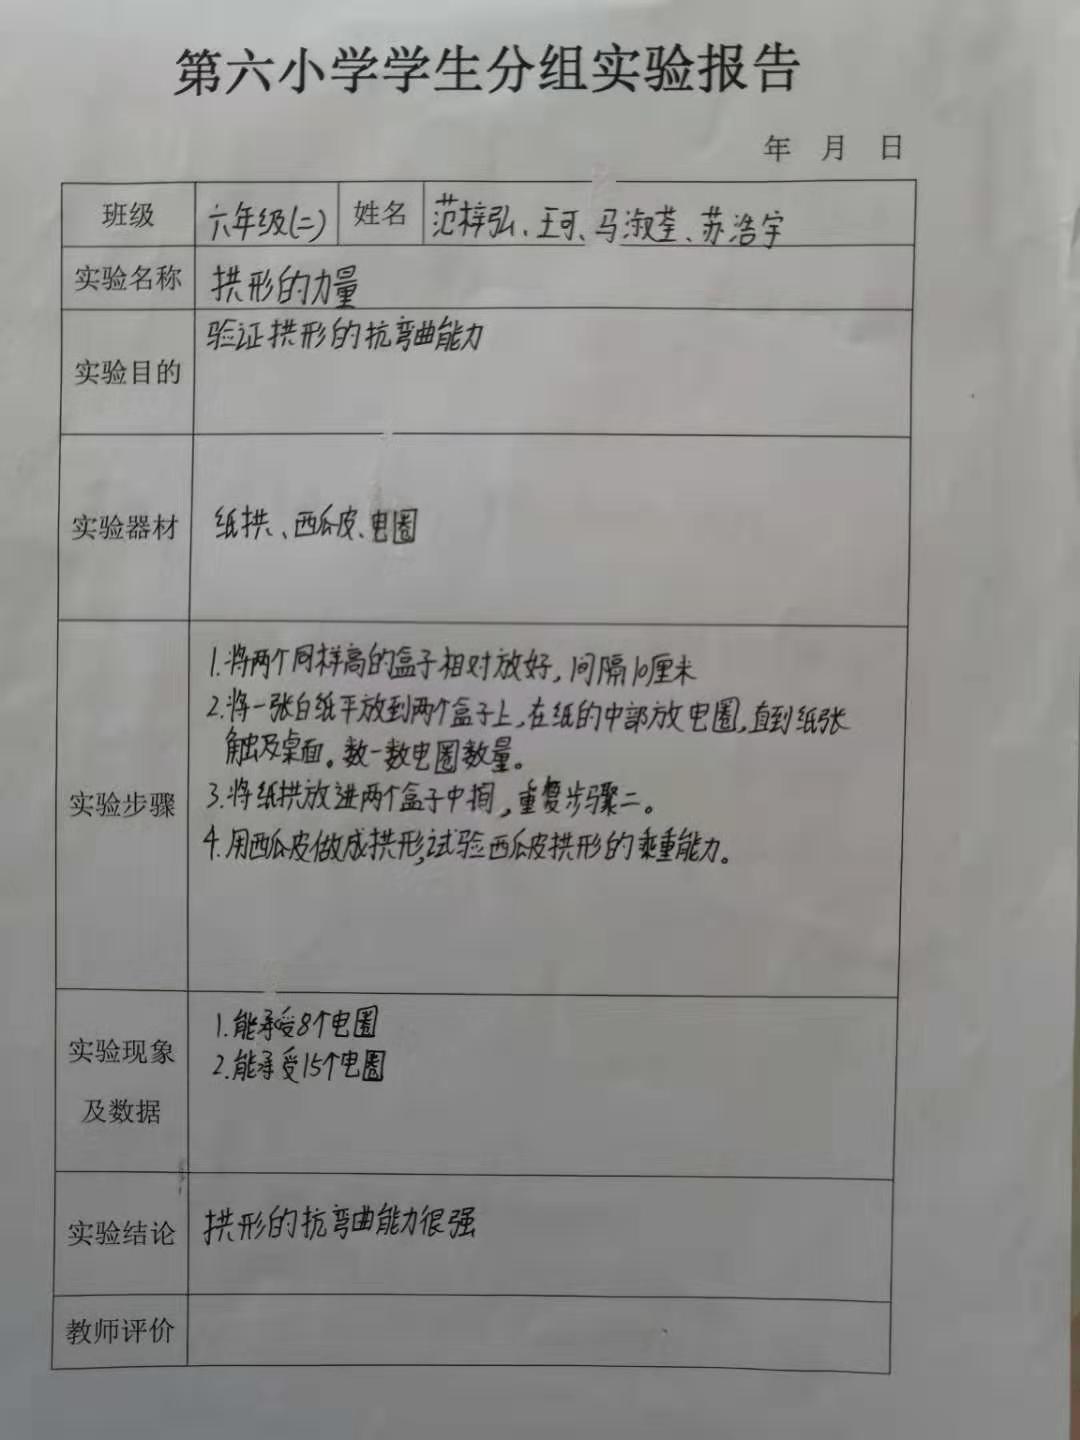 第六小学学生分组实验报告
年 月 日
班级 六年级(二) 姓名 范梓弘、王可、马淑荃、苏浩宇
实验名称 拱形的力量
实验目的 验证拱形的抗弯曲能力
实验器材 纸拱、西瓜皮、电圈
实验步骤
1.将两个同样高的盒子相对放好,间隔10厘米
2.将一张白纸平放到两个盒子上,在纸的中部放电圈,直到纸张
触及桌面。数一数电圈数量。
3.将纸拱放进两个盒子中间,重复步骤二。
4.用西瓜皮做成拱形,试验西瓜皮拱形的乘重能力。
实验现象
及数据
1.能承受8个电圈
2.能承受15个电圈
实验结论 拱形的抗弯曲能力很强
教师评价